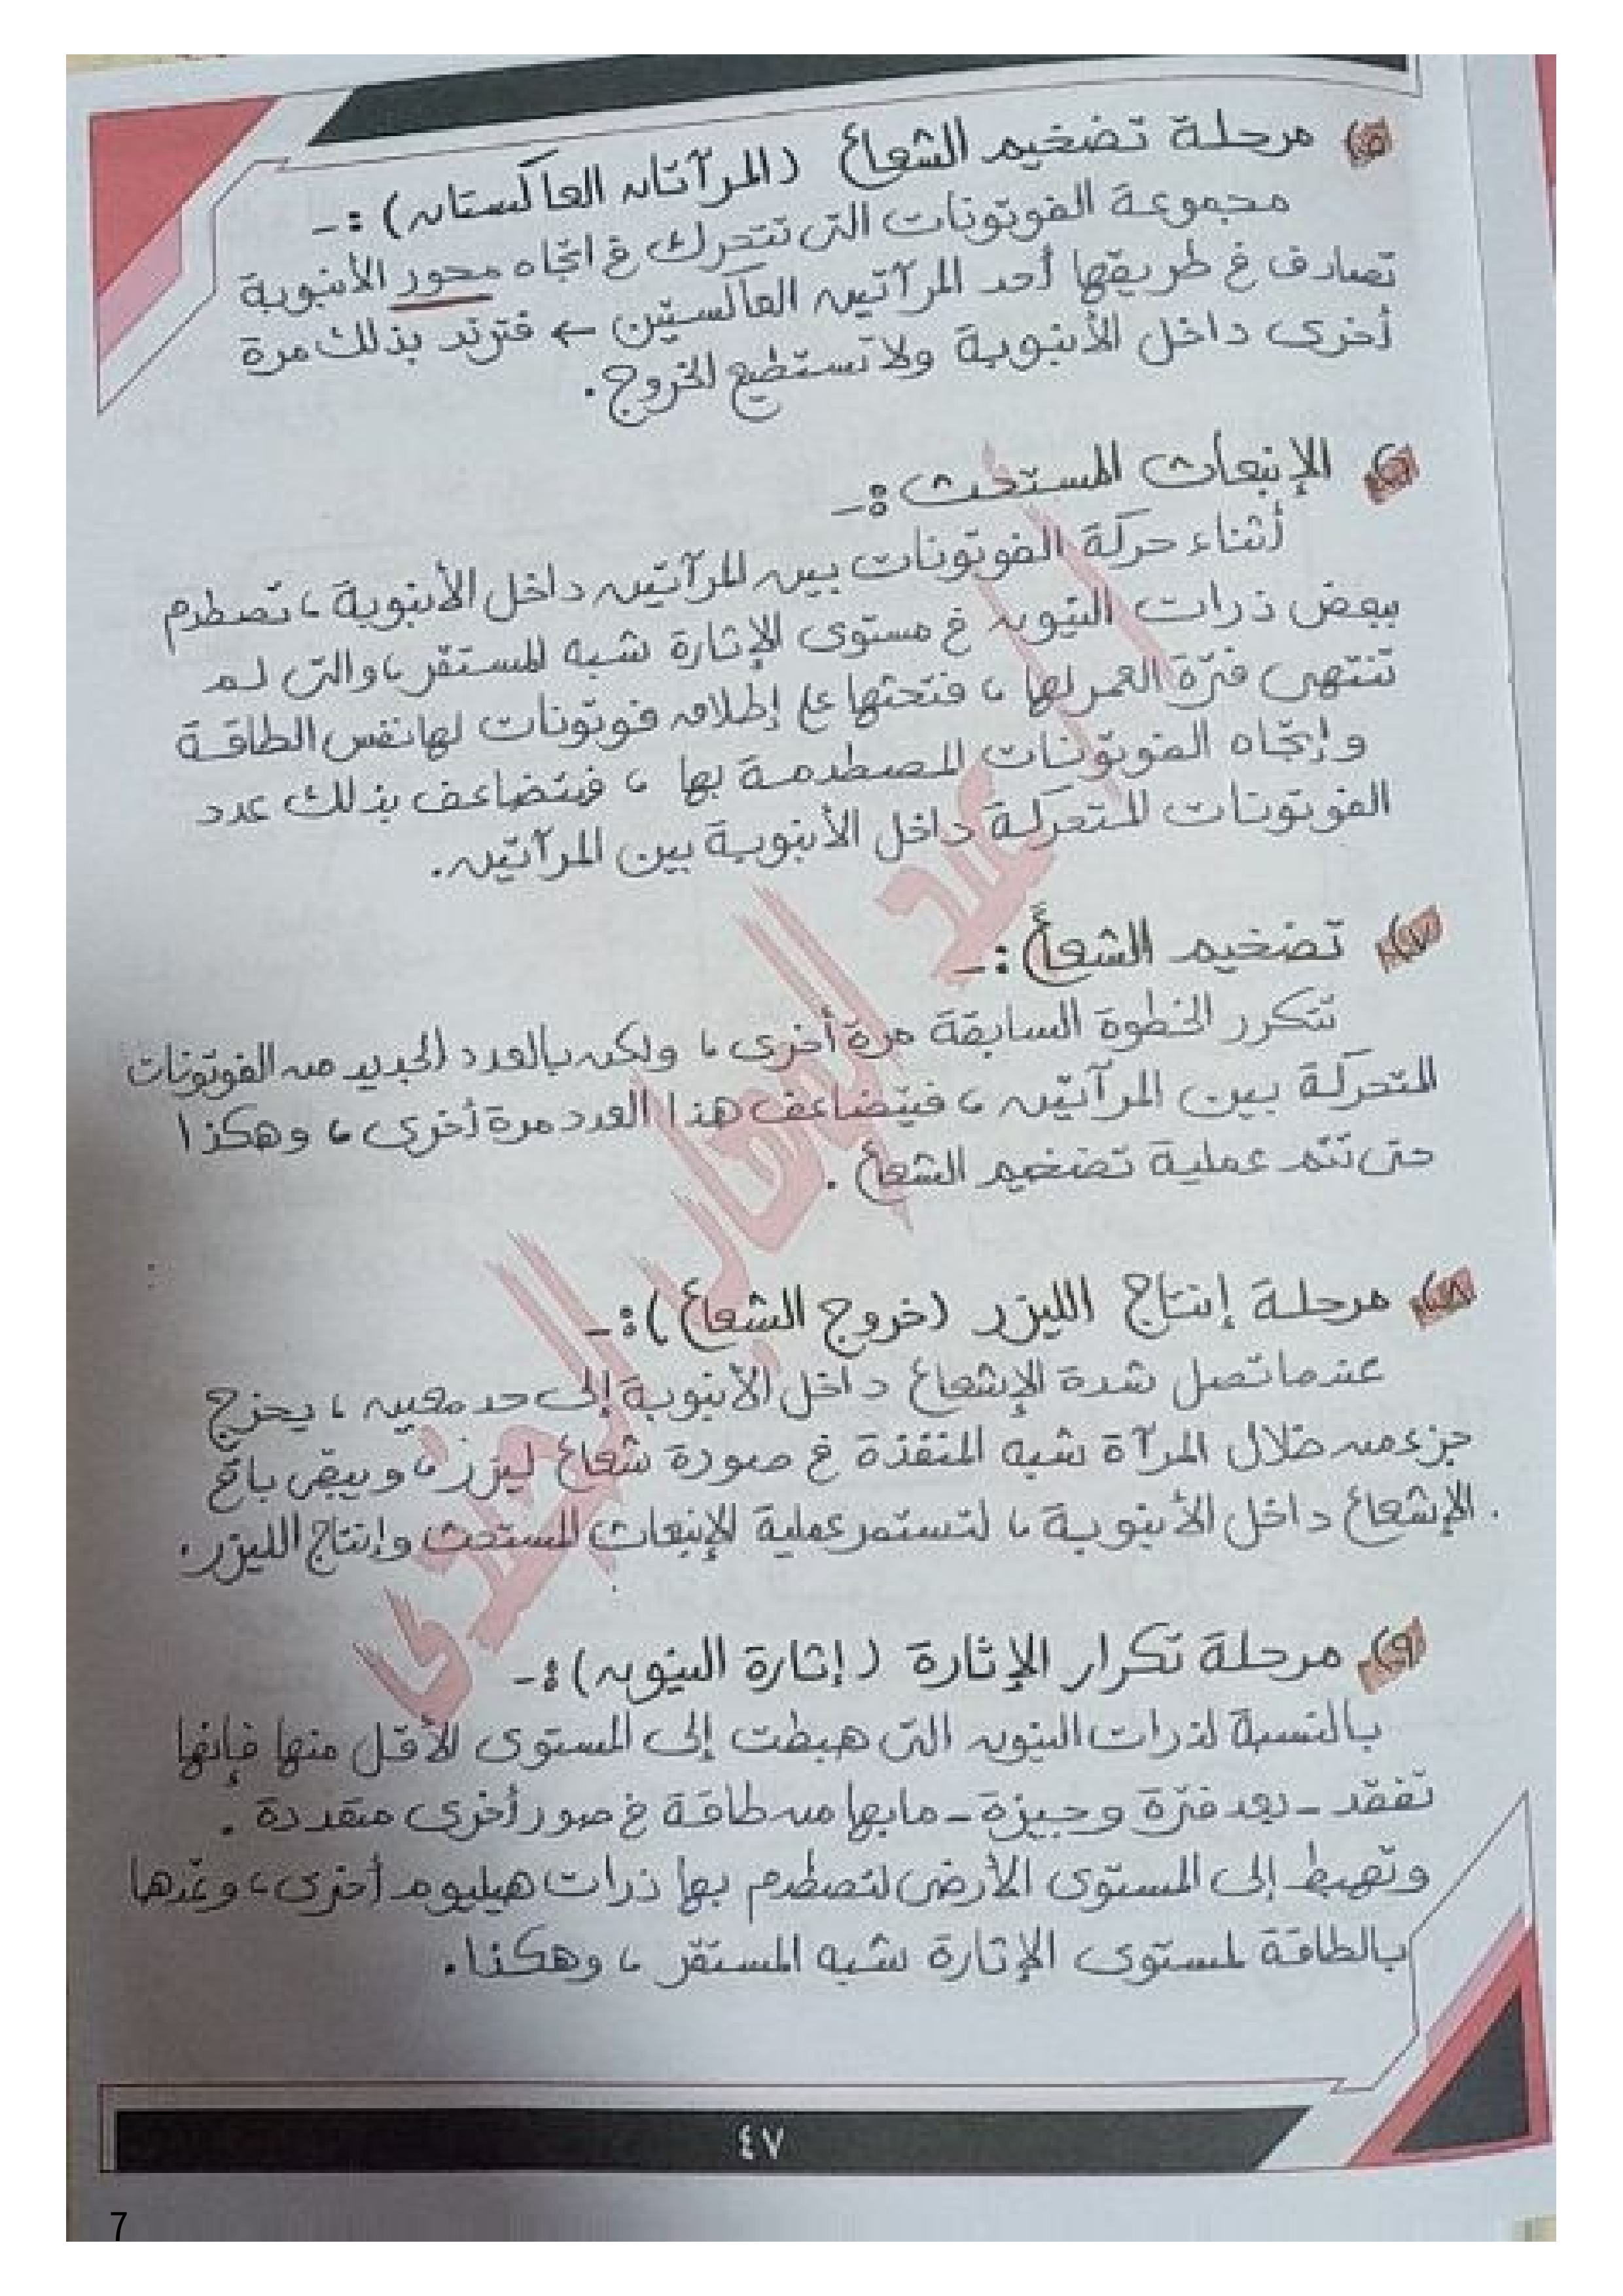 ٥) مرحلة تضخيم الشعاع (المرآتان العاكستان) :-
مجموعة الفوتونات التى تتحرك فى اتجاه محور الأنبوبة
تصادف فى طريقها أحد المرآتين العاكستين ← فترتد بذلك مرة
أخرى داخل الأنبوبة ولا تستطيع الخروج .
٦) الإنبعاث المستحث :-
أثناء حركة الفوتونات بين المرآتين داخل الأنبوبة ، تصطدم
ببعض ذرات النيون فى مستوى الإثارة شبه المستقر ، والتى لم
تنتهى فترة العمر لها ، فتحثها على إطلاق فوتونات لها نفس الطاقة
وإتجاه الفوتونات المصطدمة بها ، فيتضاعف بذلك عدد
الفوتونات المتحركة داخل الأنبوبة بين المرآتين .
٧) تضخيم الشعاع :-
تتكرر الخطوة السابقة مرة أخرى ، ولكن بالعدد الجديد من الفوتونات
المتحركة بين المرآتين ، فيتضاعف هذا العدد مرة أخرى ، وهكذا
حتى تتم عملية تضخيم الشعاع .
٨) مرحلة إنتاج الليزر (خروج الشعاع) :-
عندما تصل شدة الإشعاع داخل الأنبوبة إلى حد معين ، يخرج
جزء منه خلال المرآة شبه المنفذة فى صورة شعاع ليزر ، ويبقى باقى
الإشعاع داخل الأنبوبة ، لتستمر عملية الإنبعاث المستحث وإنتاج الليزر .
٩) مرحلة تكرار الإثارة (إثارة النيون) :-
بالنسبة لذرات النيون التى هبطت إلى المستوى الأقل منها فإنها
تفقد - بعد فترة وجيزة - ما بها من طاقة فى صور أخرى متعددة .
وتهبط إلى المستوى الأرضى لتصطدم بها ذرات هيليوم أخرى ، وتمدها
بالطاقة لمستوى الإثارة شبه المستقر ، وهكذا .
٤٧
7